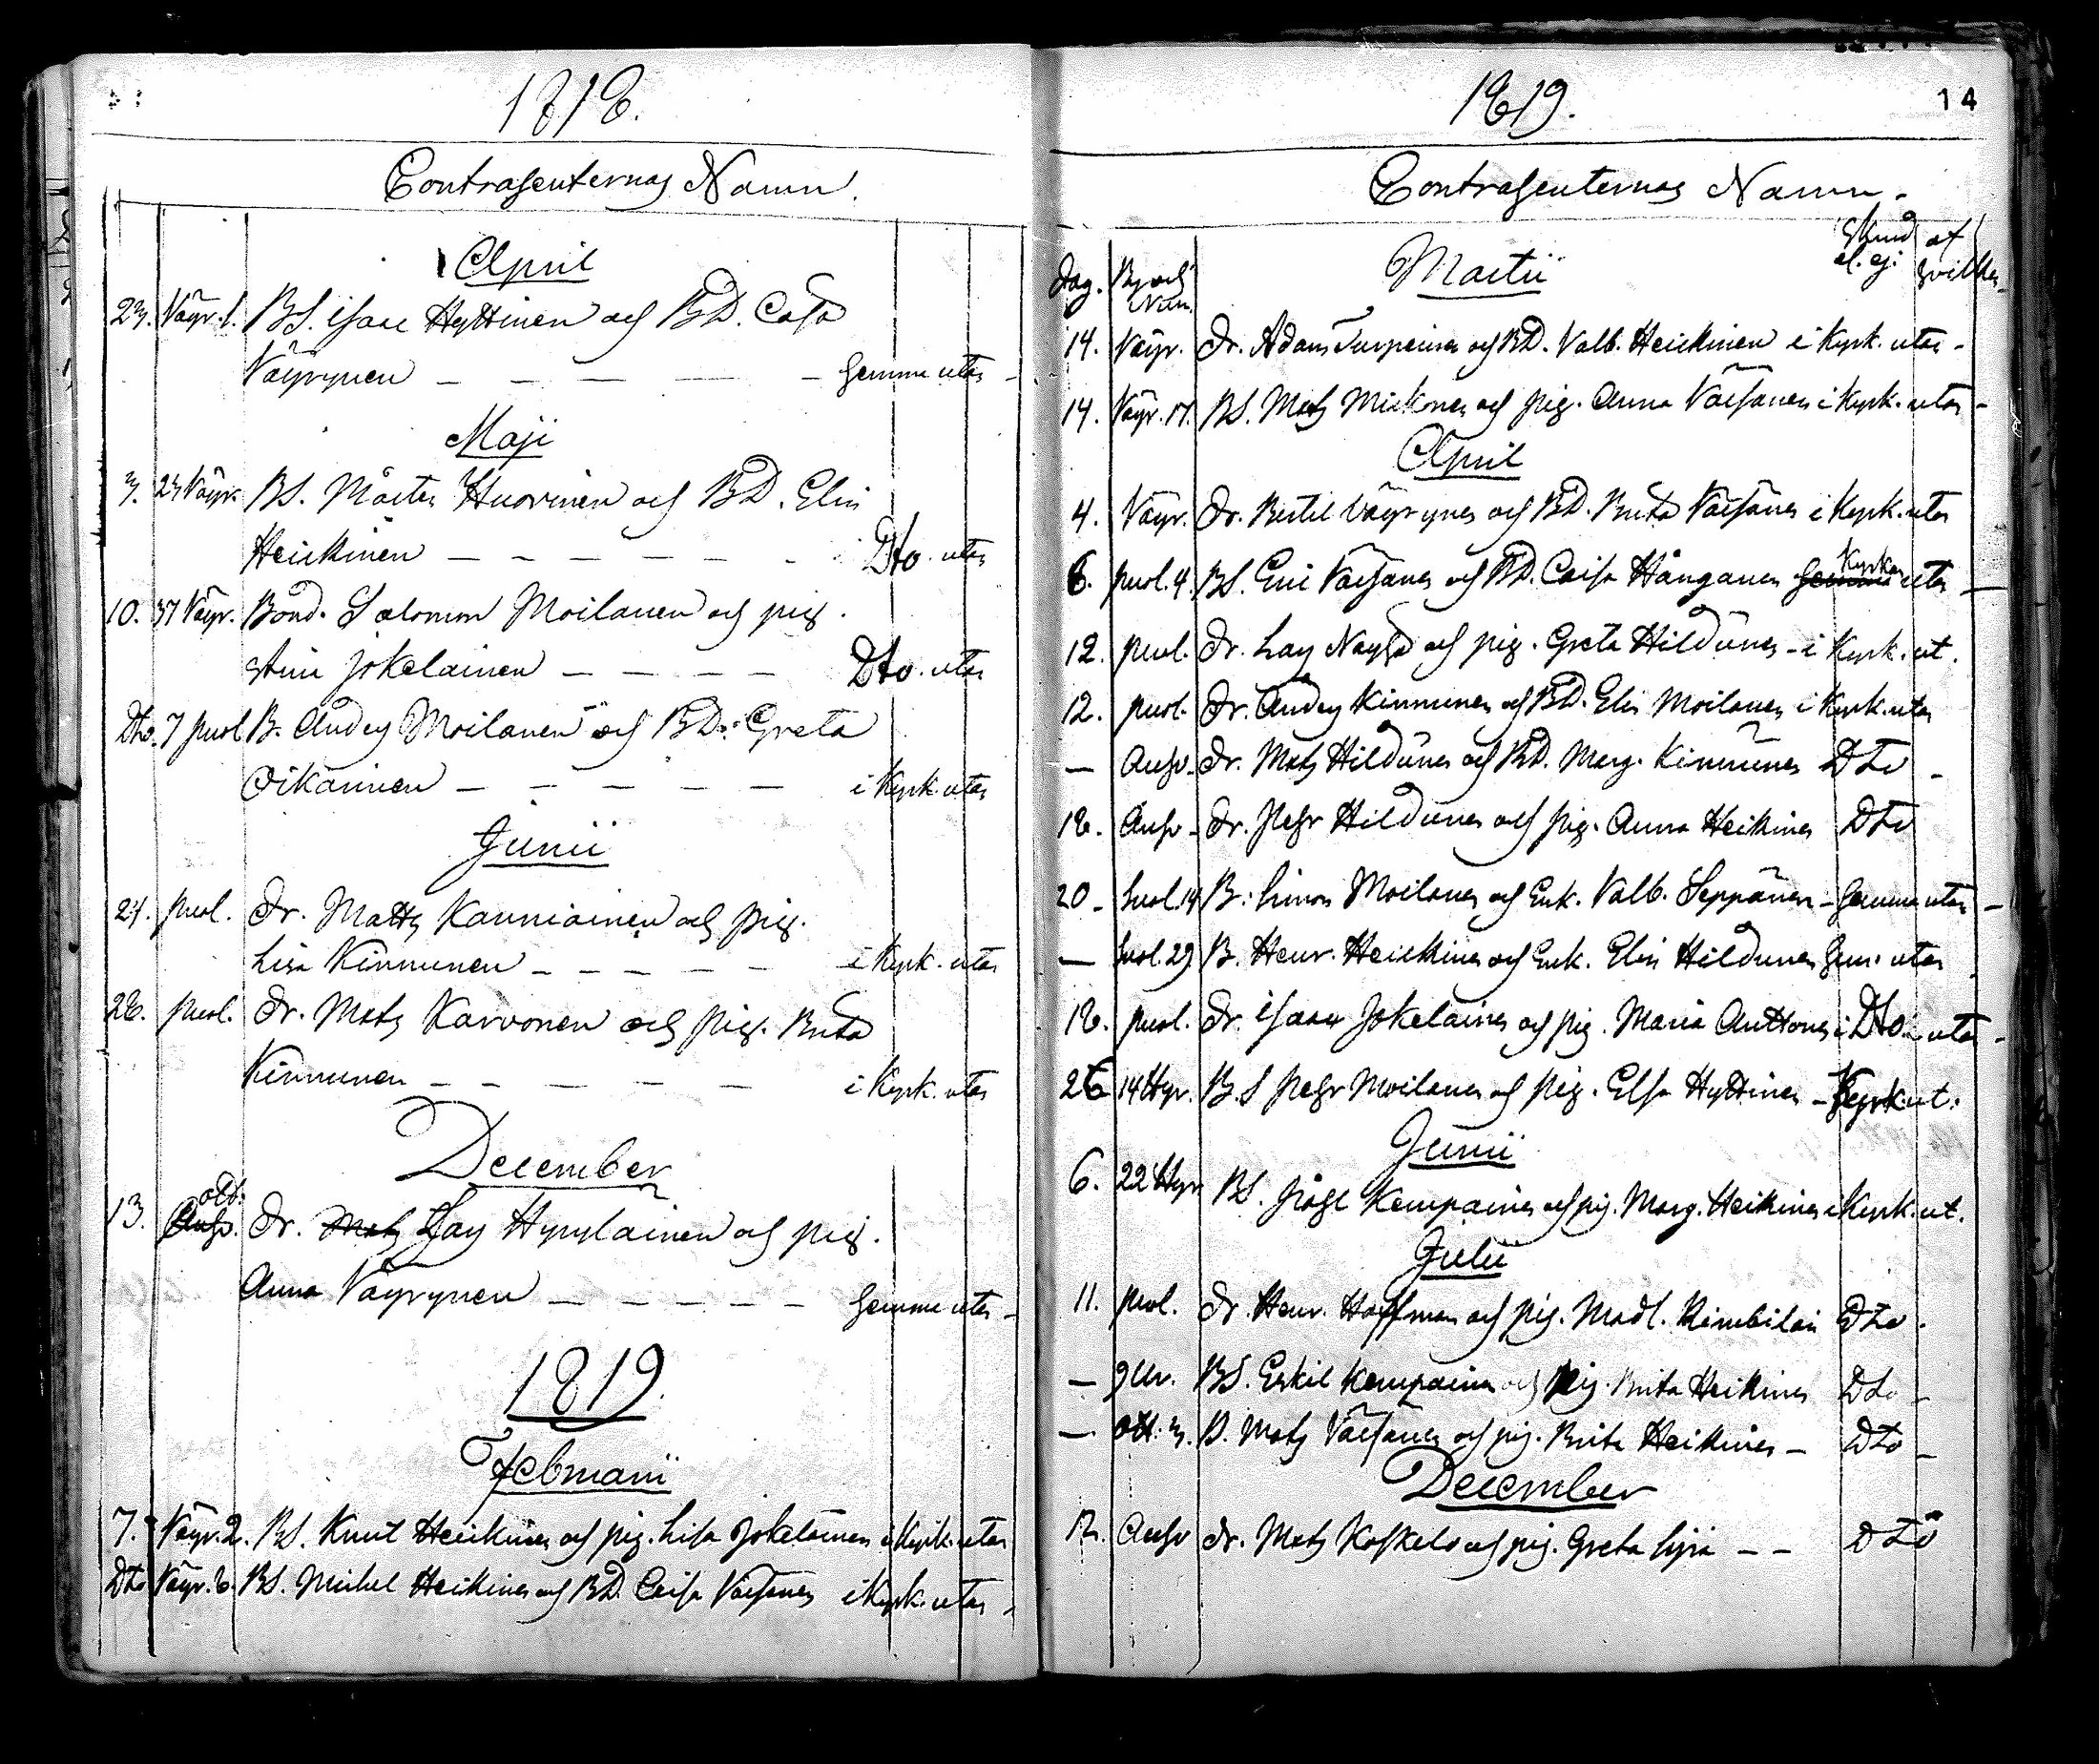 1818.
Contrahenternas Namn.
April
23. Väyr. 1. BS. Isaac Hyttinen och BD. Casa
Väyrynen — — — — — hemma utan —
Maji
3. 23 Väyr. BS. Mårten Huovinen och BD. Elin
Heickinen — — — — — — Dto. utan
10. 37 Väyr. Bond. Salomon Moilanen och pig.
Anna Jokelainen — — — — Dto. utan
Dto. 7 Puol B. Anders Moilanen och BD. Greta
Oikarinen — — — — — i Kyrk. utan
Junii
24. Puol. Dr. Matts Kauniainen och pig.
Lisa Kinnunen — — — — — i Kyrk. utan
28. Puol. Dr. Mats Karvonen och pig. Brita
Kinnunen — — — — — i Kyrk. utan
December
13. Dr. Hyrylainen och pig.
Anna Väyrynen — — — — — hemma utan —
1819.
Februarii
7. Väyr. 2. BS. Knut Heickinen och pig. Lisa Jokelainen i Kyrk. utan
Dto Väyr. 6. BS. Michel Heikinen och BD. Caisa Väisänen i Kyrk. utan -
14
1819.
Contrahenternas Namn.
Dag. By och Num. Martii el. ej. af hvilken
14. Väyr. Dr. Adam Turpeinen och BD. Valb. Heickinen i Kyrk. utan -
14. Väyr. 17. BS. Mats Mickonen och pig. Anna Väisänen i Kyrk. utan -
April
4. Väyr. Dr. Bertil Väyrynen och BD. Brita Väisänen i Kyrk. utan
6. Puol. 4. BS. Eric Väisänen och BD. Caisa Hänganen Kyrkan utan —
12. Puol. Dr. och pig. Greta Hildunen - i Kyrk. ut.
12. Puol. Dr. Anders Kinnunen och BD. Elin Moilanen i Kyrk. utan
— Anho - Dr. Mats Hildunen och BD. Marg. Kinnunen Dto -
18. Anho - Dr. Pehr Hildunen och pig. Anna Heikinen Dto
20 - Suol. 14 B. Simon Moilanen och Enk. Valb. Seppänen - hemma utan -
— Suol. 29 B. Henr. Heickinen och Enk. Elin Hildunen hem. utan
18. Puol. Dr. Isaac Jokelainen och pig. Maria Anttonen i Dto - utan -
26 14 Hyr. B.S Pehr Moilanen och pig. Elsa Hyttinen - Kyrk ut.
Junii
6. 22 Hyr BS. Påhl Kempainen och pig. Marg. Heikinen i Kyrk. ut.
Julii
11. Puol. Dr. Henr. Hoffman och pig. Madl. Dto.
— BS. Eskil Kempainen och pig. Brita Heikinen Dto -
— B. Mats Väisänen och pig. Brita Heikinen - Dto -
December
12. Anho Dr. Mats Koskelo och pig. Greta — — Dto